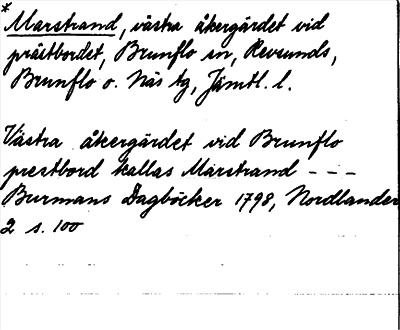 *
Marstrand, västra åkergärdet vid
prästbordet, Brunflo sn, Revsunds,
Brunflo o. Näs tg, Jämtl. l.
Västra åkergärdet vid Brunflo
prestbord kallas Marstrand - - -
Burmans Dagböcker 1798, Nordlander
2 s. 100